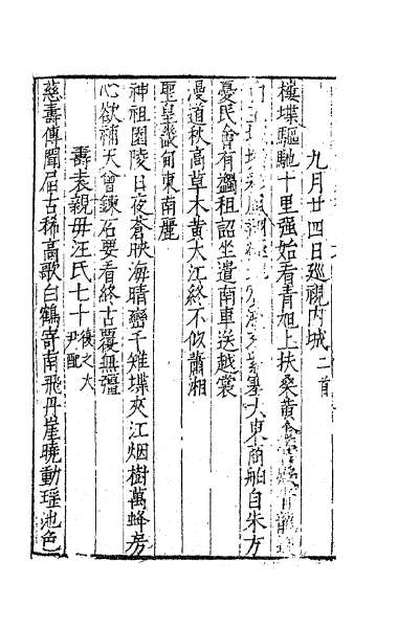 九月廿四日巡視內城二首
樓堞驅馳十里强始看青旭上扶桑黃
塞大東商舶自朱方
憂民會有蠲租詔坐遣南車送越裳
漫道秋高草木黃大江終不似瀟湘
聖皇畿甸東南麗
神祖園陵日夜蒼映海晴巒千雉堞夾江烟樹萬蜂房
心欲補天會鍊石要看終古覆無疆
壽袁親母汪氏七十後之大尹配
慈壽傳聞屆古稀高歌白鶴寄南飛丹崖曉動瑶池色